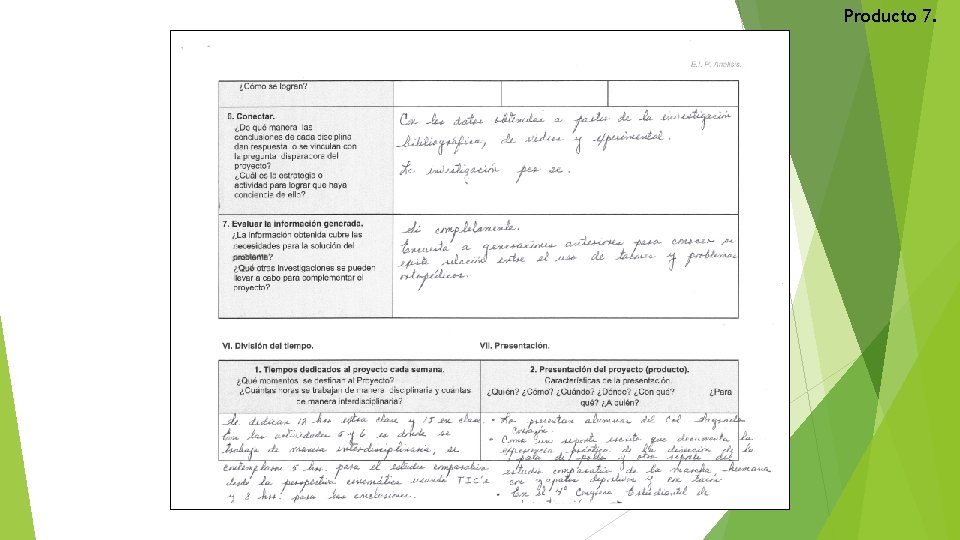 Producto 7.
E.I.P. Análisis.
¿Cómo se logran?
6. Conectar.
¿De qué manera las
conclusiones de cada disciplina
dan respuesta o se vinculan con
la pregunta disparadora del
proyecto?
¿Cuál es la estrategia o
actividad para lograr que haya
conciencia de ello?
Con los datos obtenidos a partir de la investigación
bibliográfica, de videos y experimental.
La investigación per se.
7. Evaluar la información generada.
¿La información obtenida cubre las
necesidades para la solución del
problema?
¿Qué otras investigaciones se pueden
llevar a cabo para complementar el
proyecto?
Si completamente.
Encuesta a generaciones anteriores para conocer si
existe relación entre el uso de tacones y problemas
ortopédicos.
VI. División del tiempo.
VII. Presentación.
1. Tiempos dedicados al proyecto cada semana.
¿Qué momentos se destinan al Proyecto?
¿Cuántas horas se trabajan de manera disciplinaria y cuántas
de manera interdisciplinaria?
2. Presentación del proyecto (producto).
Características de la presentación.
¿Quién? ¿Cómo? ¿Cuándo? ¿Dónde? ¿Con qué? ¿Para
qué? ¿A quién?
Se dedican 12 hrs extra clase y 15 en clase.
Con las actividades 5 y 6 es donde se
trabaja de manera interdisciplinaria, se
contemplaron 5 hrs. para el estudio comparativo
desde la perspectiva cinemática usando TIC's
y 3 hrs. para las conclusiones.
• La presentan alumnas del Col
Corazón.
• Como un reporte escrito que documenta la
experiencia práctica de la disección de la
pata de pollo y otro reporte del
estudio comparativo de la marcha humana
con zapatos deportivos y con tacón
• En el 4° Congreso Estudiantil de